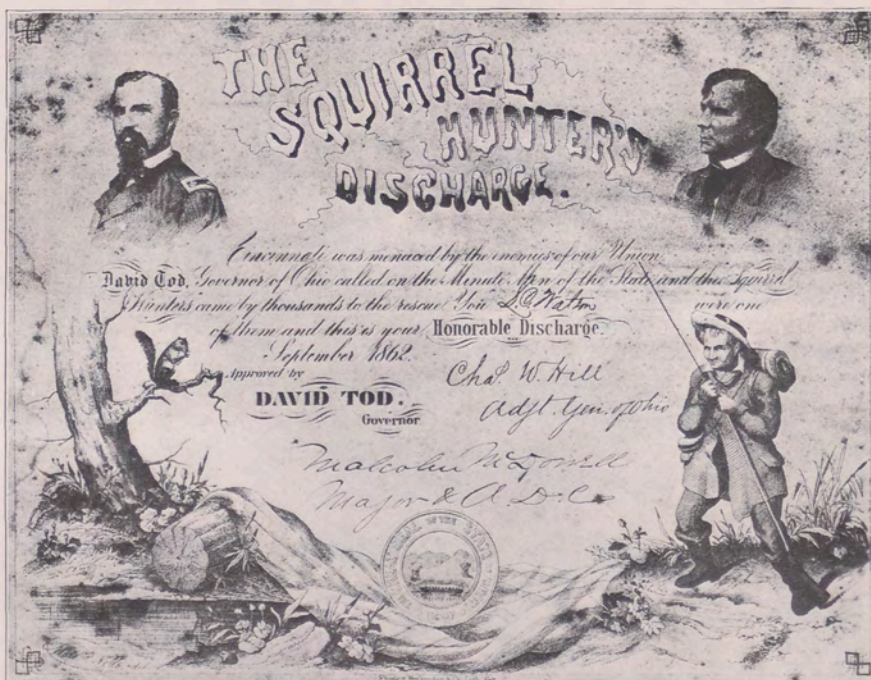 THE
SQUIRREL
HUNTER'S
DISCHARGE.
Cincinnati was menaced by the enemies of our Union
David Tod, Governor of Ohio called on the Minute Men of the State and the Squirrel
Hunters came by thousands to the rescue You D.C. Watson were one
of them and this is your Honorable Discharge.
September 1862.
Approved by
Chas. W. Hill
DAVID TOD.
Adjt. Gen. of Ohio
Governor
Malcolm McDowell
Major & A. D. C.
SEAL OF THE STATE